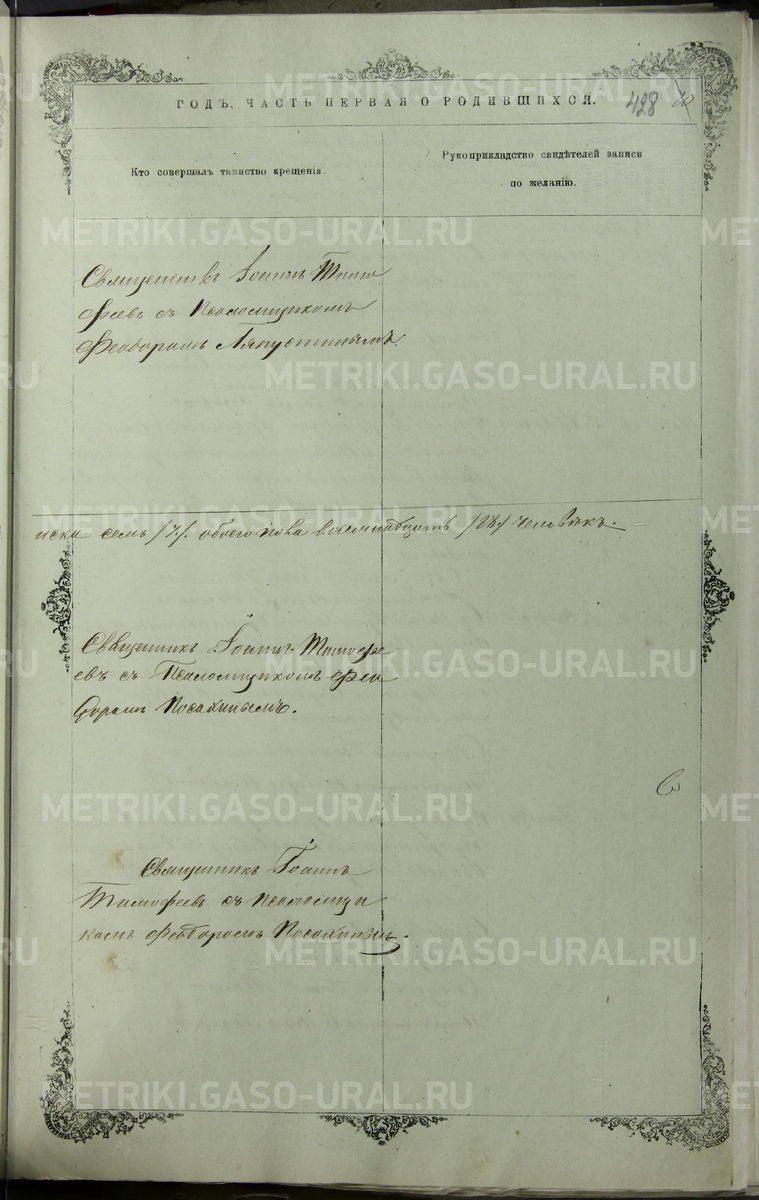 METRIKI.GASO-URAL.RU
ГОДЪ, ЧАСТЬ ПЕРВАЯ О РОДИВШИХСЯ. 428
Кто совершалъ таинство крещенія.
Рукоприкладство свидѣтелей записи
по желанію.
Священникъ Іоаннъ Тимо
феевъ съ Псаломщикомъ
Феодоромъ
семь /7/. обоего пола /28/ человѣкъ.
Священникъ Іоаннъ Тимофе
евъ съ Псаломщикомъ Фео
доромъ
Священникъ Іоаннъ
Тимофеевъ съ Псаломщи
комъ Феодоромъ
METRIKI.GASO-URAL.RU
METRIKI.GASO-URAL.RU
METRIKI.GASO-URAL.RU
METRIKI.GASO-URAL.RU
METRIKI.GASO-URAL.RU
METRIKI.GASO-URAL.RU
METRIKI.GASO-URAL.RU